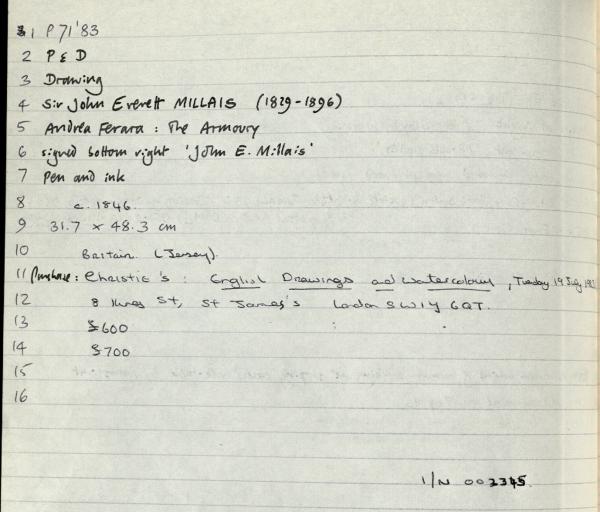 1 P71'83
2 P & D
3 Drawing
4 Sir John Everett MILLAIS (1829-1896)
5 Andrea Ferara : The Armoury
6 signed bottom right 'John E. Millais'
7 Pen and ink
8 c. 1846.
9 31.7 x 48.3 cm
10 Britain. (Jersey).
11 Purchase : Christie's : English Drawings and Watercolours, Tuesday 19 July
12 8 King St, St James's London SW1Y 6QT.
13 $600
14 $700
15
16
I/N 002345